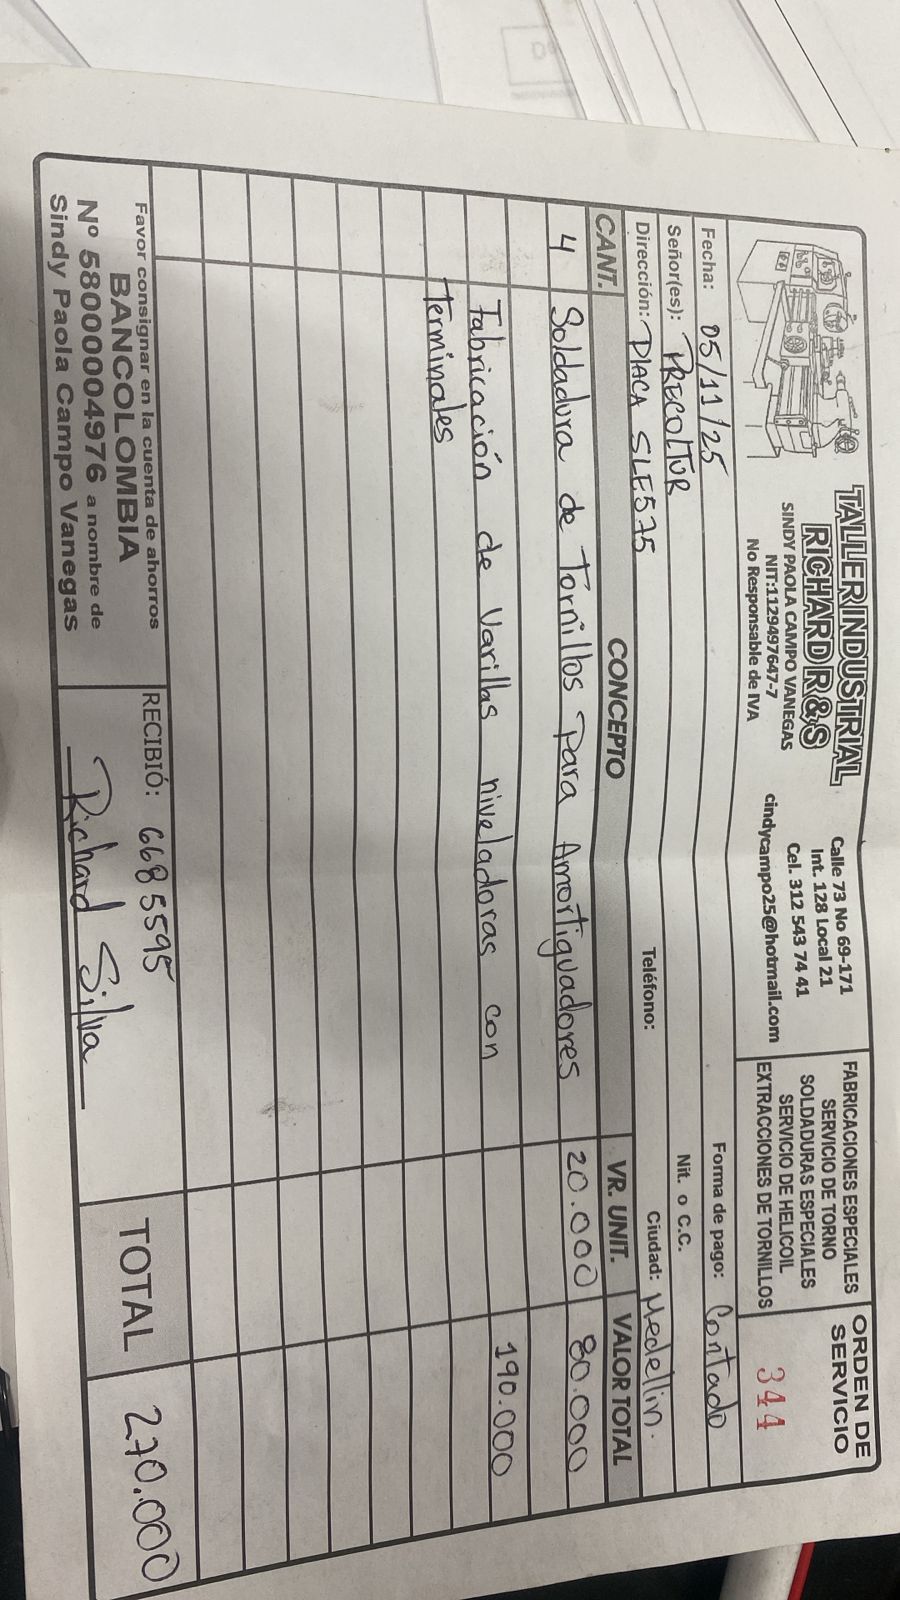 TALLER INDUSTRIAL
RICHARD R&S
SINDY PAOLA CAMPO VANEGAS
NIT:1129497647-7
No Responsable de IVA
Calle 73 No 69-171
Int. 128 Local 21
Cel. 312 543 74 41
cindycampo25@hotmail.com
FABRICACIONES ESPECIALES
SERVICIO DE TORNO
SOLDADURAS ESPECIALES
SERVICIO DE HELICOIL
EXTRACCIONES DE TORNILLOS
ORDEN DE
SERVICIO
344
Fecha: 05/11/25 Forma de pago: Contado
Señor(es): PRECOLTUR Nit. o C.C.
Dirección: PLACA SLE575 Teléfono: Ciudad: Medellin.
CANT. CONCEPTO VR. UNIT. VALOR TOTAL
4 Soldadura de Tornillos Para Amortiguadores 20.000 80.000
Fabricación de Varillas niveladoras con 190.000
Terminales
Favor consignar en la cuenta de ahorros
BANCOLOMBIA
Nº 58000004976 a nombre de
Sindy Paola Campo Vanegas
RECIBIÓ: 6685595
Richard Silva
TOTAL 270.000